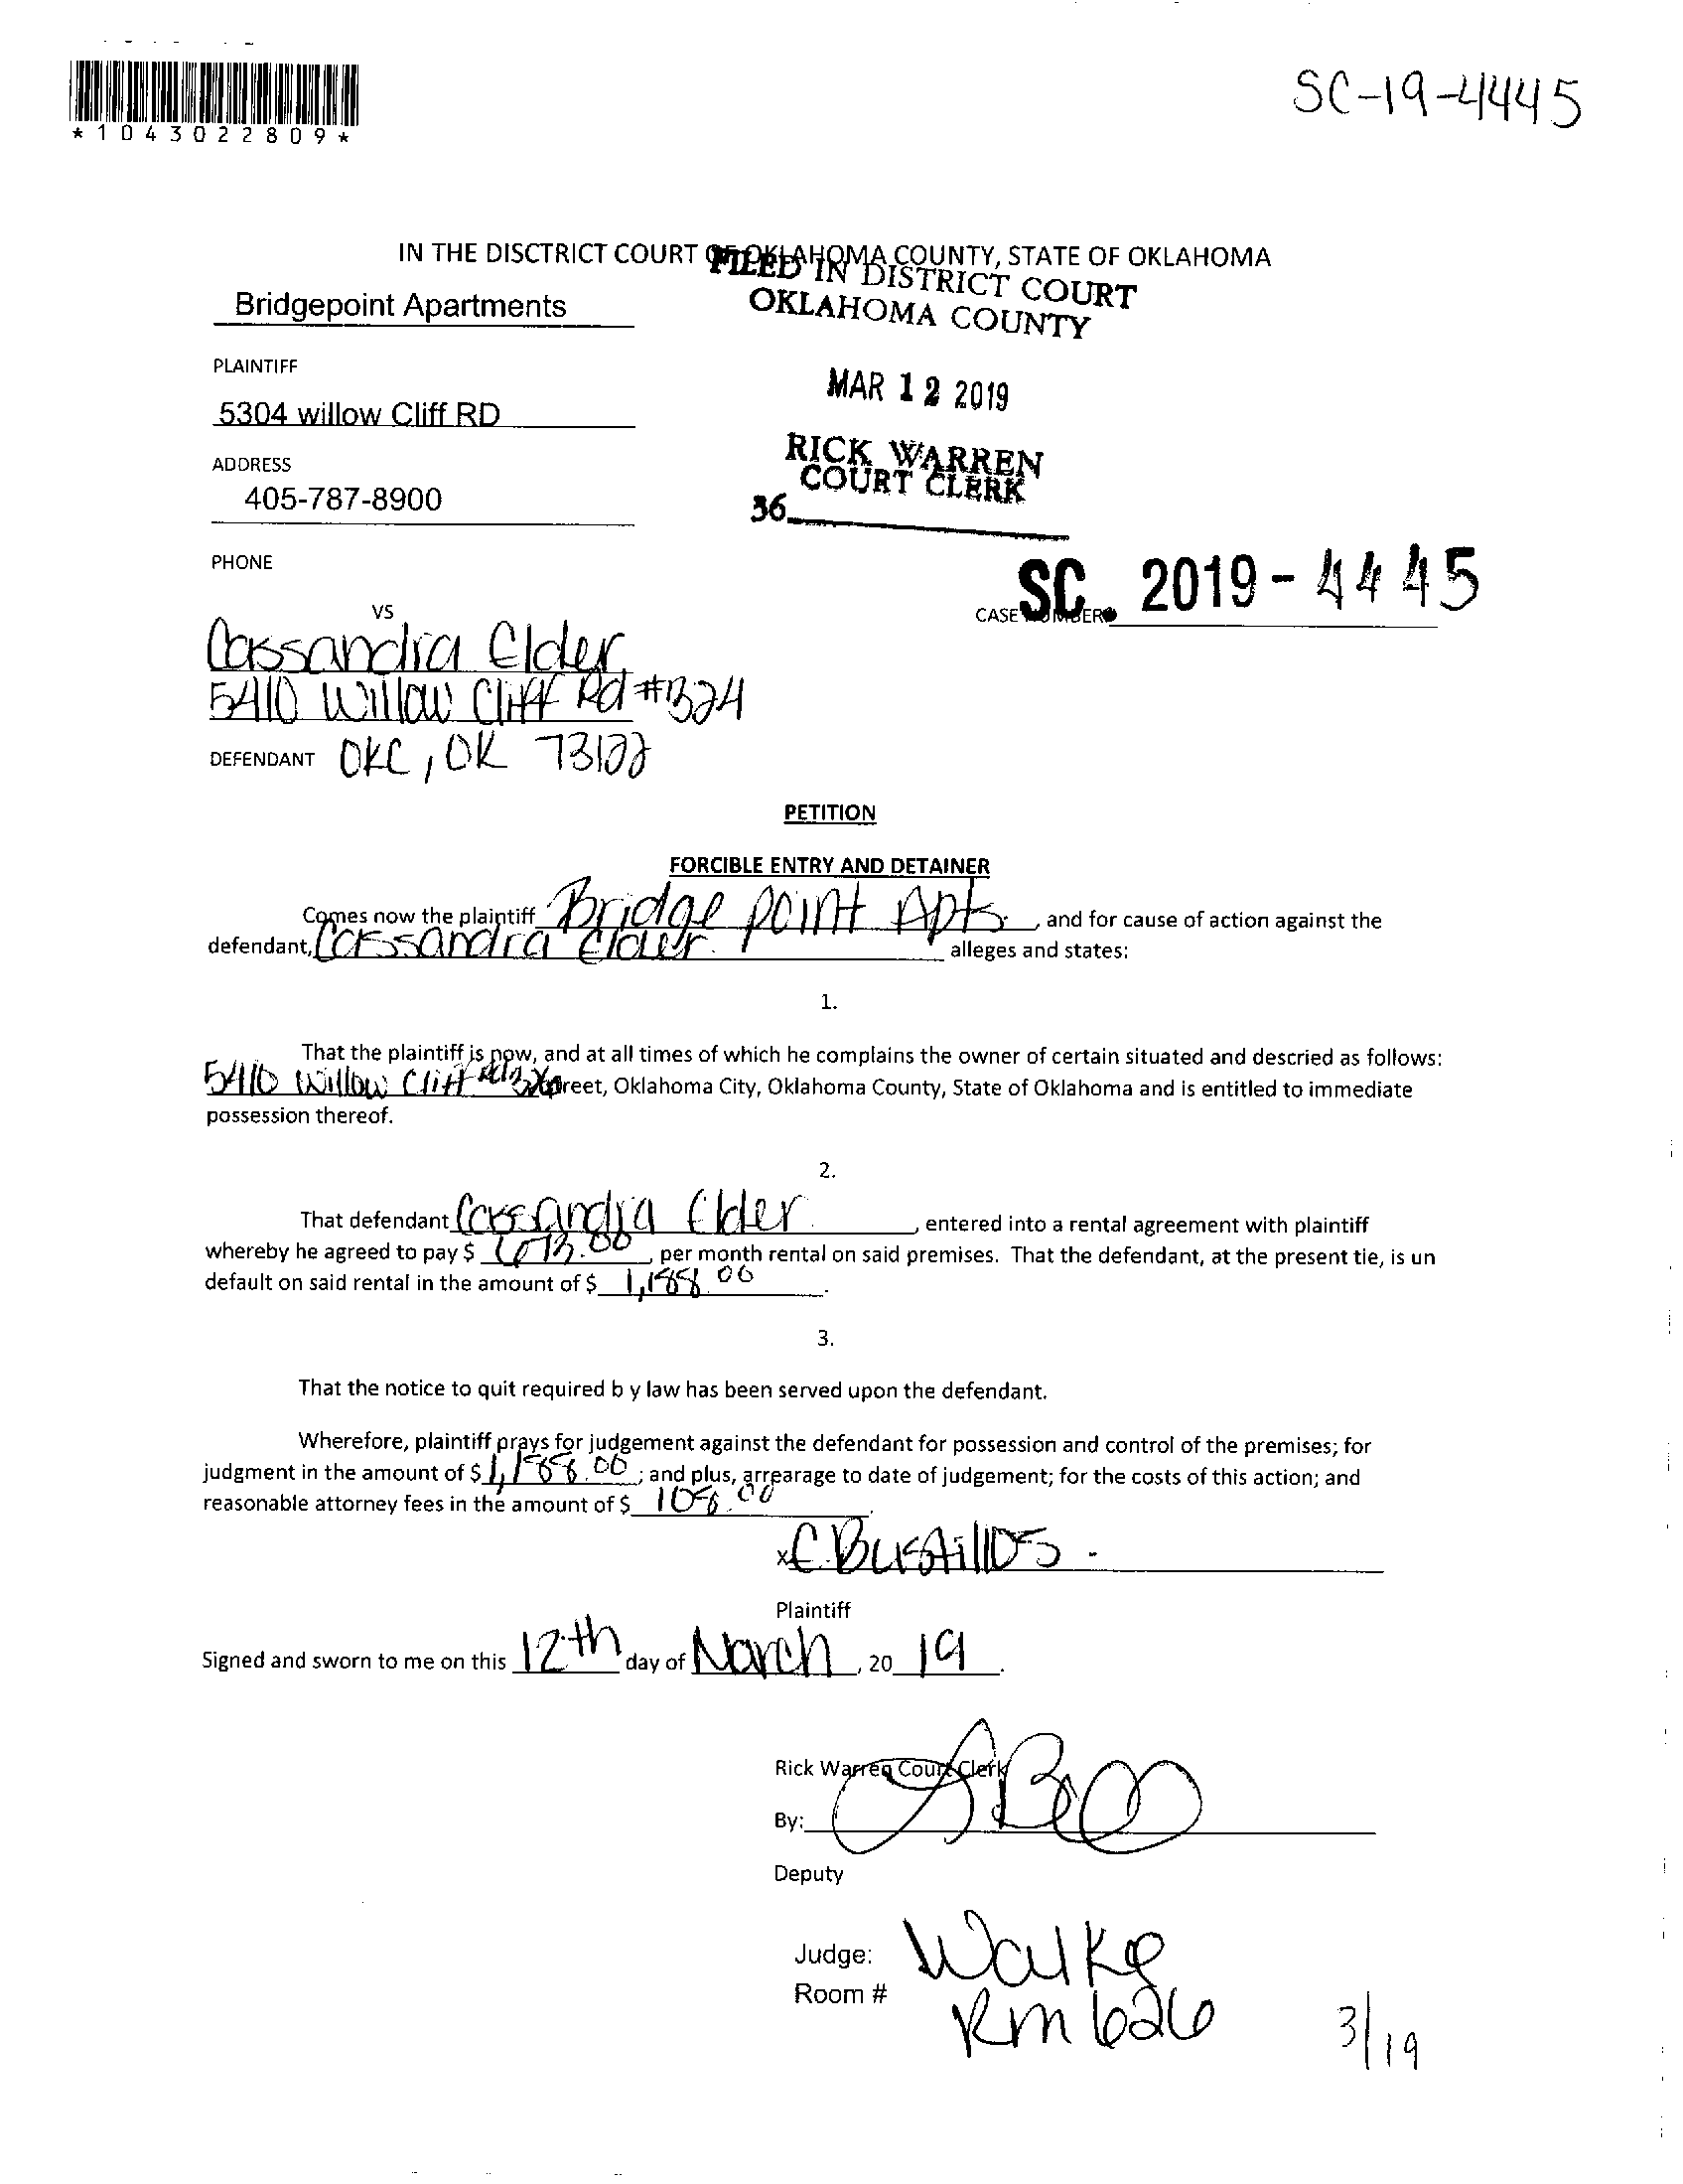 *1043022809*
SC-19-4445
IN THE DISCTRICT COURT OF OKLAHOMA COUNTY, STATE OF OKLAHOMA
FILED IN DISTRICT COURT
OKLAHOMA COUNTY
Bridgepoint Apartments
PLAINTIFF
MAR 12 2019
5304 willow Cliff RD
RICK WARREN
COURT CLERK
ADDRESS
405-787-8900
36
PHONE
SC. 2019-4445
CASE NUMBER
VS
Cassandra Elder
5410 Willow Cliff Rd #324
DEFENDANT OKC, OK 73122
PETITION
FORCIBLE ENTRY AND DETAINER
Comes now the plaintiff Bridge point Apts. , and for cause of action against the
defendant, Cassandra Elder. alleges and states:
1.
That the plaintiff is now, and at all times of which he complains the owner of certain situated and descried as follows:
5410 Willow Cliff Rd 324 Street, Oklahoma City, Oklahoma County, State of Oklahoma and is entitled to immediate
possession thereof.
2.
That defendant Cassandra Elder , entered into a rental agreement with plaintiff
whereby he agreed to pay $ .00 per month rental on said premises. That the defendant, at the present tie, is un
default on said rental in the amount of $ 1,188.00 .
3.
That the notice to quit required b y law has been served upon the defendant.
Wherefore, plaintiff prays for judgement against the defendant for possession and control of the premises; for
judgment in the amount of $ 1,188.00 ; and plus, arrearage to date of judgement; for the costs of this action; and
reasonable attorney fees in the amount of $ 108.00 .
x C Bustillos.
Plaintiff
Signed and sworn to me on this 12th day of March , 20 19 .
Rick Warren Court Clerk
By:
Deputy
Judge: Walke
Room # Rm 626
3/19